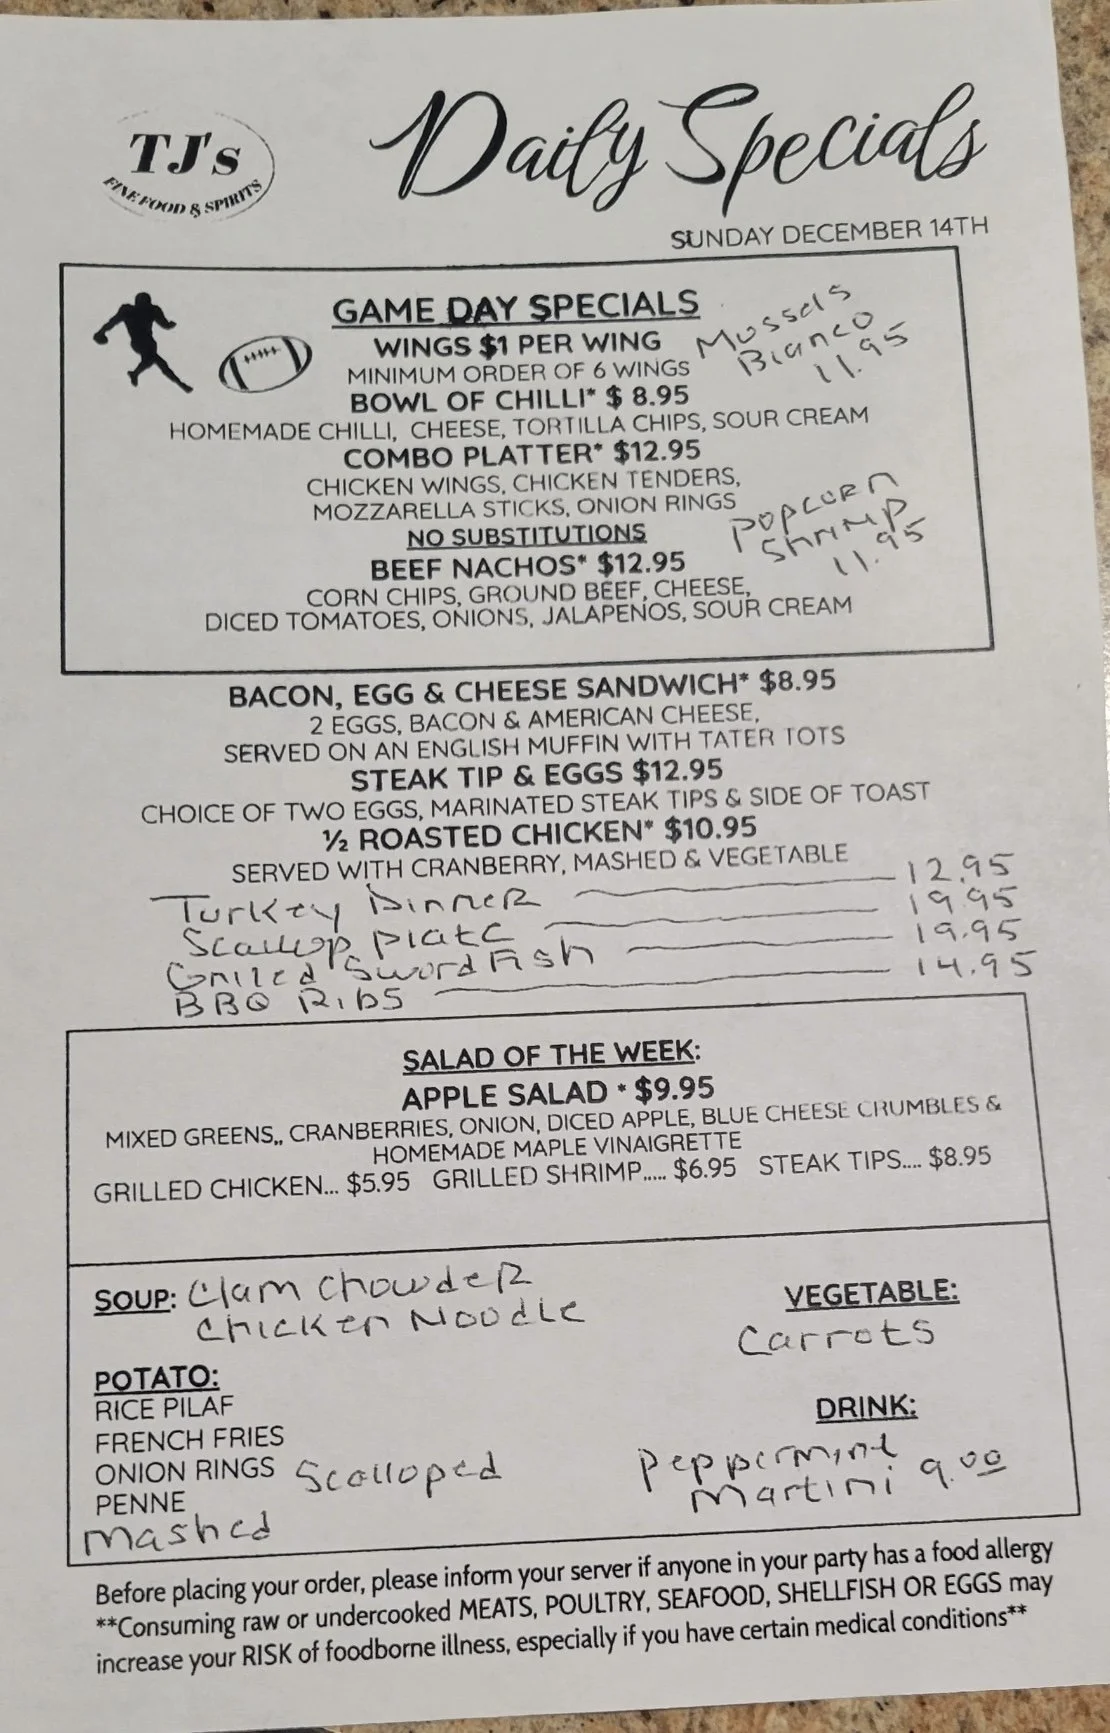 TJ's
FINE FOOD & SPIRITS
Daily Specials
SUNDAY DECEMBER 14TH
GAME DAY SPECIALS
WINGS $1 PER WING
MINIMUM ORDER OF 6 WINGS
Mussels
Bianco
11.95
BOWL OF CHILLI* $ 8.95
HOMEMADE CHILLI, CHEESE, TORTILLA CHIPS, SOUR CREAM
COMBO PLATTER* $12.95
CHICKEN WINGS, CHICKEN TENDERS,
MOZZARELLA STICKS, ONION RINGS
NO SUBSTITUTIONS
POPCORN
SHRIMP
11.95
BEEF NACHOS* $12.95
CORN CHIPS, GROUND BEEF, CHEESE,
DICED TOMATOES, ONIONS, JALAPENOS, SOUR CREAM
BACON, EGG & CHEESE SANDWICH* $8.95
2 EGGS, BACON & AMERICAN CHEESE,
SERVED ON AN ENGLISH MUFFIN WITH TATER TOTS
STEAK TIP & EGGS $12.95
CHOICE OF TWO EGGS, MARINATED STEAK TIPS & SIDE OF TOAST
½ ROASTED CHICKEN* $10.95
SERVED WITH CRANBERRY, MASHED & VEGETABLE
Turkey Dinner 12.95
Scallop Plate 19.95
Grilled Swordfish 19.95
BBQ Ribs 14.95
SALAD OF THE WEEK:
APPLE SALAD * $9.95
MIXED GREENS,, CRANBERRIES, ONION, DICED APPLE, BLUE CHEESE CRUMBLES &
HOMEMADE MAPLE VINAIGRETTE
GRILLED CHICKEN... $5.95 GRILLED SHRIMP..... $6.95 STEAK TIPS.... $8.95
SOUP: Clam Chowder
Chicken Noodle
VEGETABLE:
Carrots
POTATO:
RICE PILAF
FRENCH FRIES
ONION RINGS Scalloped
PENNE
Mashed
DRINK:
Peppermint
Martini 9.00
Before placing your order, please inform your server if anyone in your party has a food allergy
**Consuming raw or undercooked MEATS, POULTRY, SEAFOOD, SHELLFISH OR EGGS may
increase your RISK of foodborne illness, especially if you have certain medical conditions**